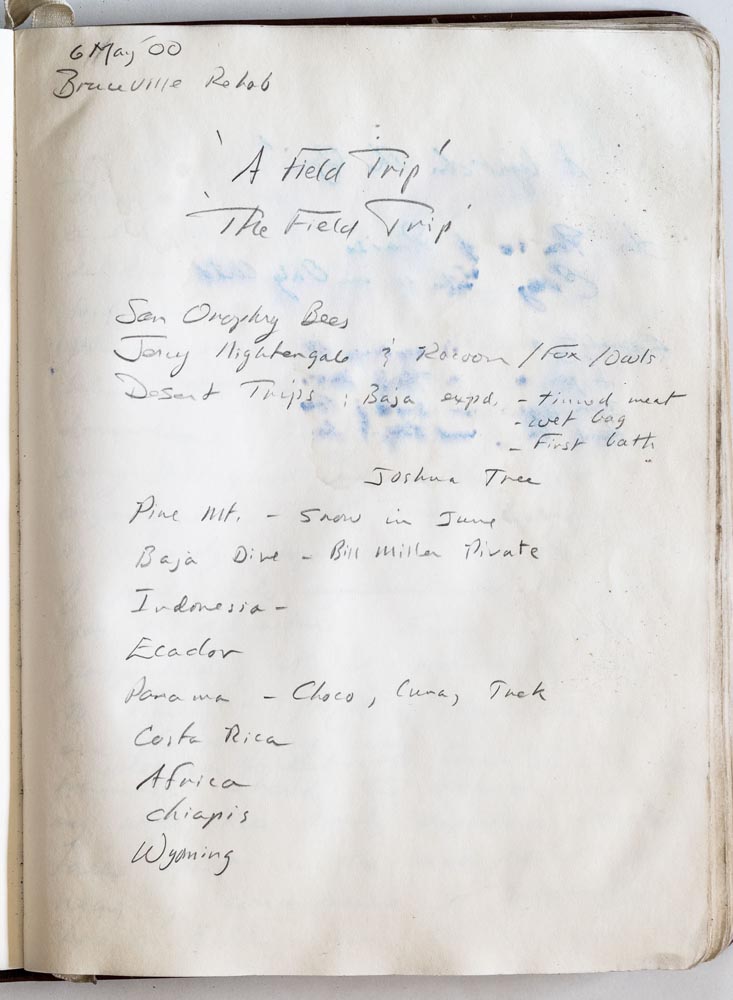 6 May '00
Bruceville Rehab
'A Field Trip'
'The Field Trip'
San Onophry Bees
Jerry Nightengale & Racoon / Fox / Owls
Desert Trips : Baja expd. - tinned meat
- wet bag
- First bath
Joshua Tree
Pine Mt. - Snow in June
Baja Dive - Bill Miller Pivate
Indonessia -
Ecador
Panama - Choco, Cuna, Trek
Costa Rica
Africa
Chiapis
Wyoming